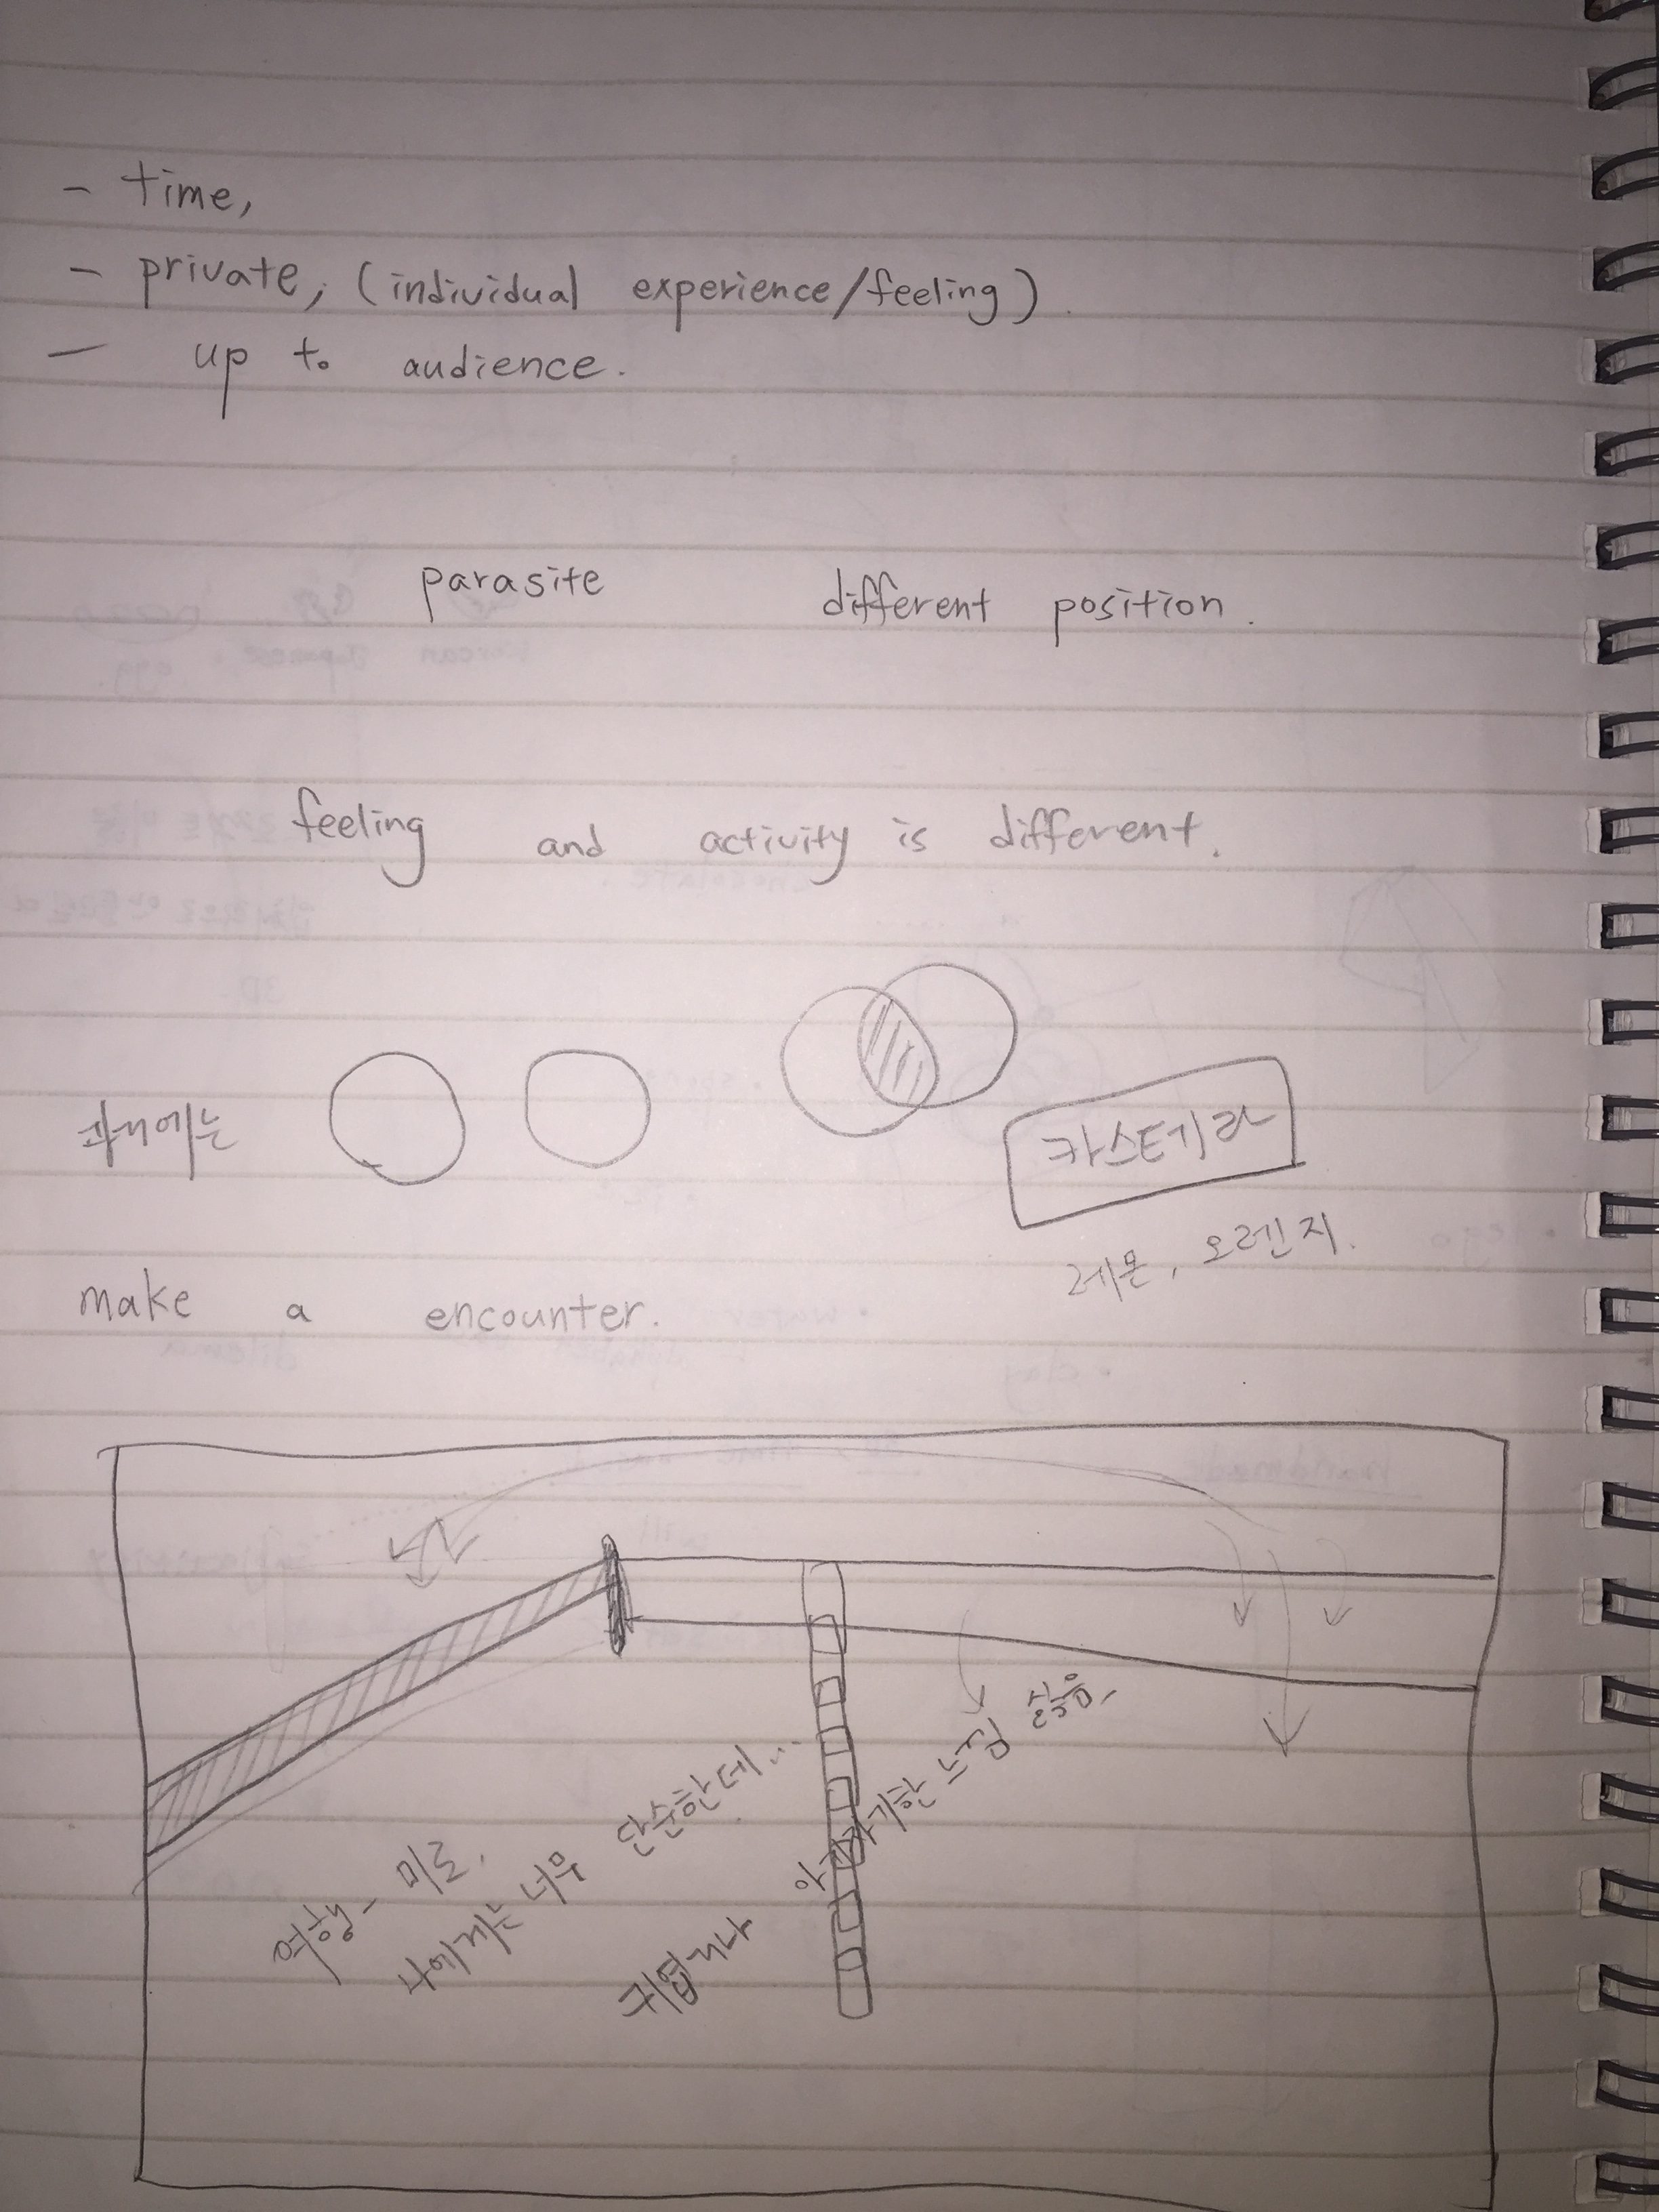 - time,
- private, (individual experience/feeling).
- up to audience.
parasite different position.
feeling and activity is different.
카스테라
레몬, 오렌지.
make a encounter.
여행 - 미로.
나에게는 너무 단순한데...
귀엽거나 아기자기한 느낌 싫음-